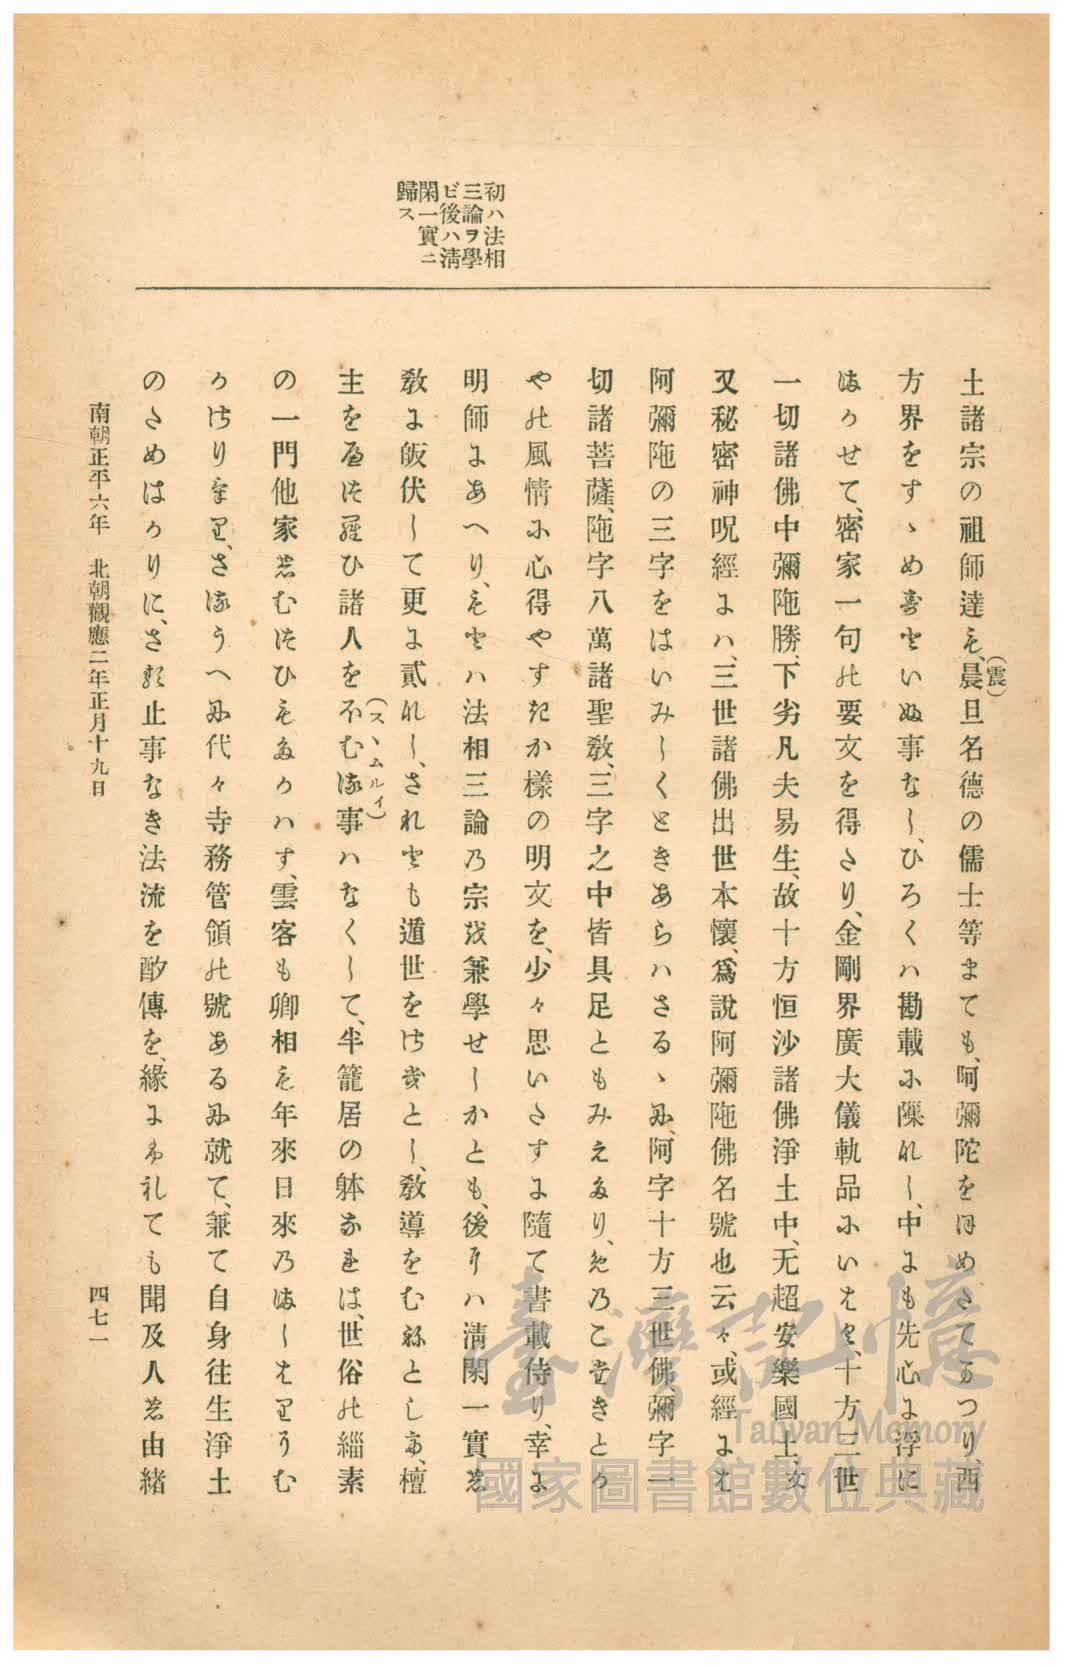 初ハ法相
三論ヲ學
ビ後ハ淸
閑一實ニ
歸ス
土諸宗の祖師達も、晨旦名德の儒士等まても、阿彌陀をほめさてまつり、西
(震)
方界をすゝめずといふ事なし、ひろくハ勘載に隟れし、中にも先心に浮に
まかせて、密家一句の要文を得たり、金剛界廣大儀軌品にいはく、十方三世
一切諸佛中彌陁勝、下劣凡夫易生、故十方恒沙諸佛淨土中、无超安樂國土、文
又秘密神呪經にハ、三世諸佛出世本懷、爲說阿彌陁佛名號也云々、或經には
阿彌陁の三字をはいみしくときあらハさるゝに、阿字十方三世佛彌字一
切諸菩薩、陁字八萬諸聖敎、三字之中皆具足ともみえたり、そのことはきとか
やの風情に心得やすきか樣の明文を、少々思いたすに隨て書載侍り、幸に
明師にあへり、もとハ法相三論の宗を兼學せしかとも、後にハ淸閑一實の
敎に皈伏して更に貳れし、されとも遁世をけぎとし、敎導をむねとして、檀
主をへつらひ諸人を不む事ハなくして、半籠居の躰なれは、世俗の緇素
(スヽムルイ)
の一門他家のむつひもたかハす、雲客も卿相も年來日來のましはりうむ
かけりまし、さるうへに代々寺務管領の號あるに就て、兼て自身往生淨土
のためはかりに、させる止事なき法流を酌傳を、緣にふれても聞及人の由緒
南朝正平六年　北朝觀應二年正月十九日
四七一
臺灣記憶
Taiwan Memory
國家圖書館數位典藏